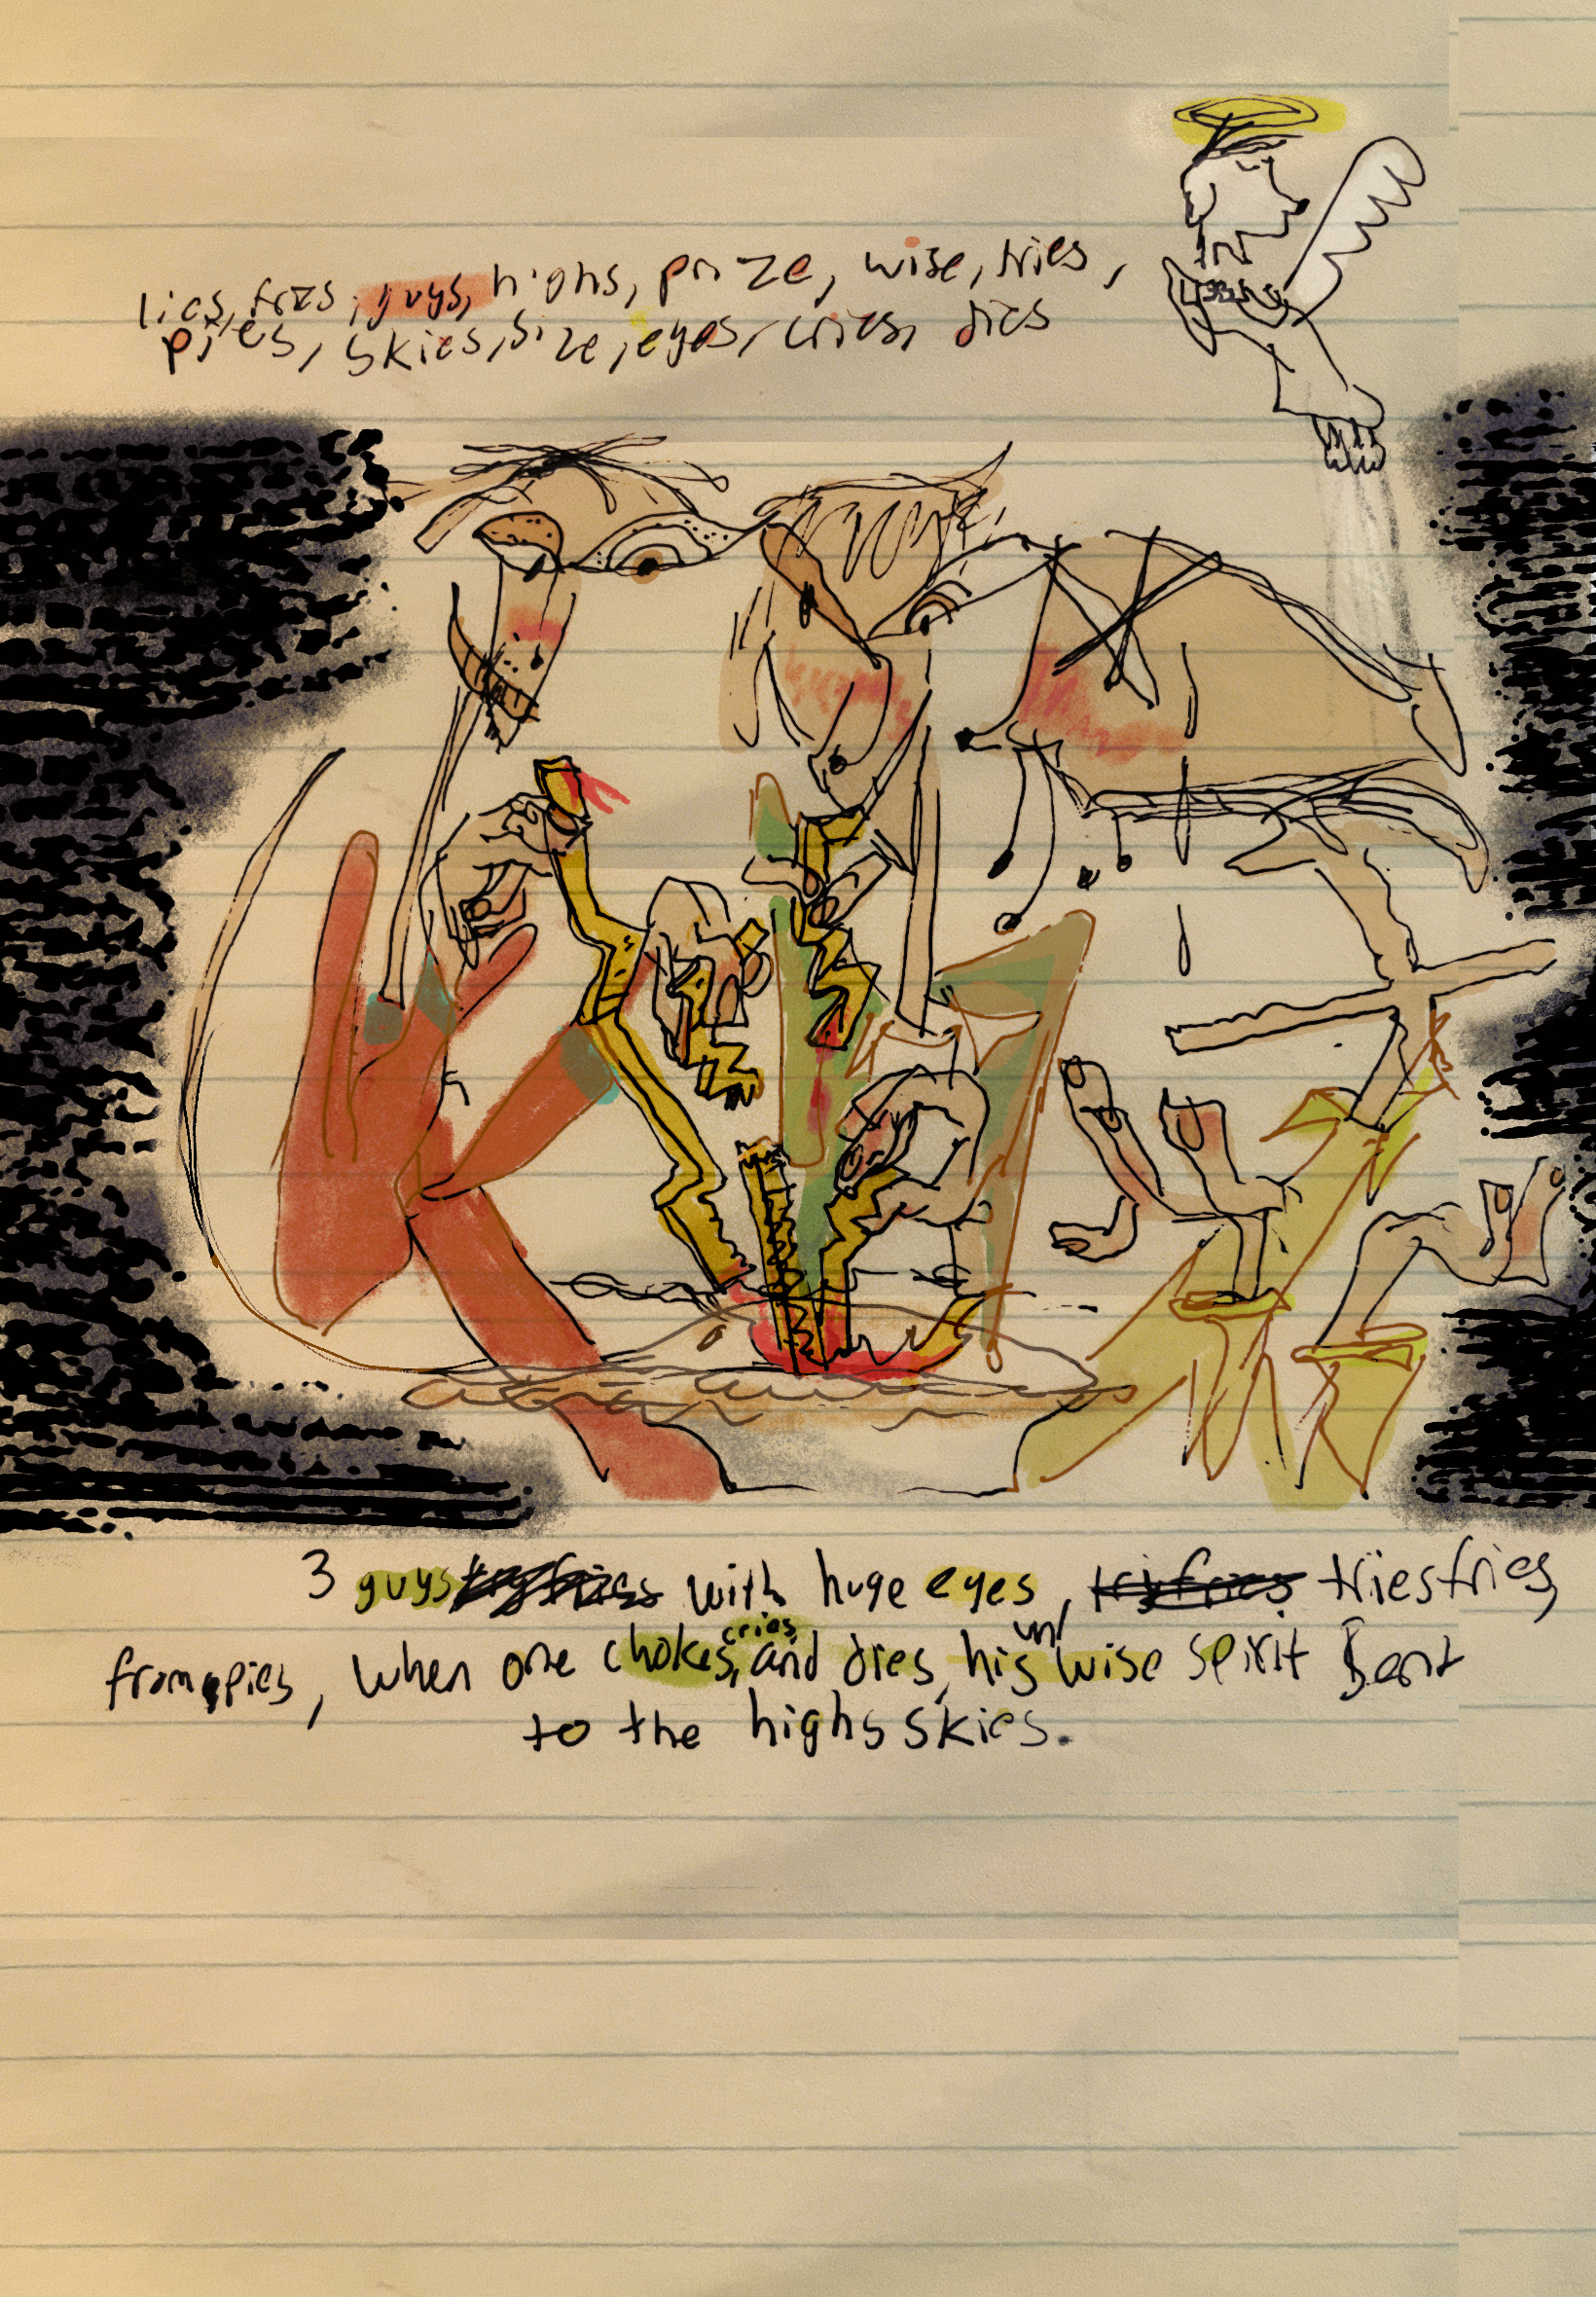 lies, fries, guys, highs, prize, wise, tries,
pies, skies, size, eyes, cries, dies
3 guys with huge eyes, tries fries,
from pies, when one chokes, cries, and dies, his w/ wise spirit Bent
to the highs skies.